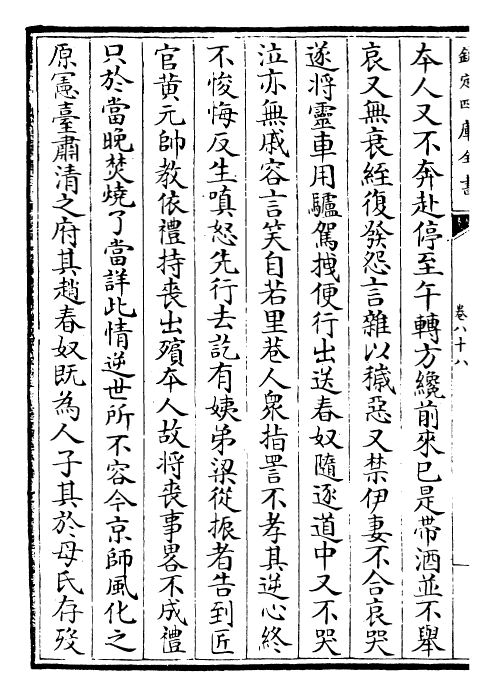 欽定四庫全書
卷八十八
本人又不奔赴停至午轉方纔前來已是帶酒並不舉
哀又無衰絰復發怨言雜以穢惡又禁伊妻不合哀哭
遂將靈車用驢駕拽便行出送春奴隨逐道中又不哭
泣亦無戚容言笑自若里巷人衆指詈不孝其逆心終
不悛悔反生嗔怒先行去訖有姨弟梁從振者告到匠
官黄元帥教依禮持喪出殯本人故將喪事畧不成禮
只於當晚焚燒了當詳此情逆世所不容今京師風化之
原憲臺肅清之府其趙春奴既為人子其於母氏存歿